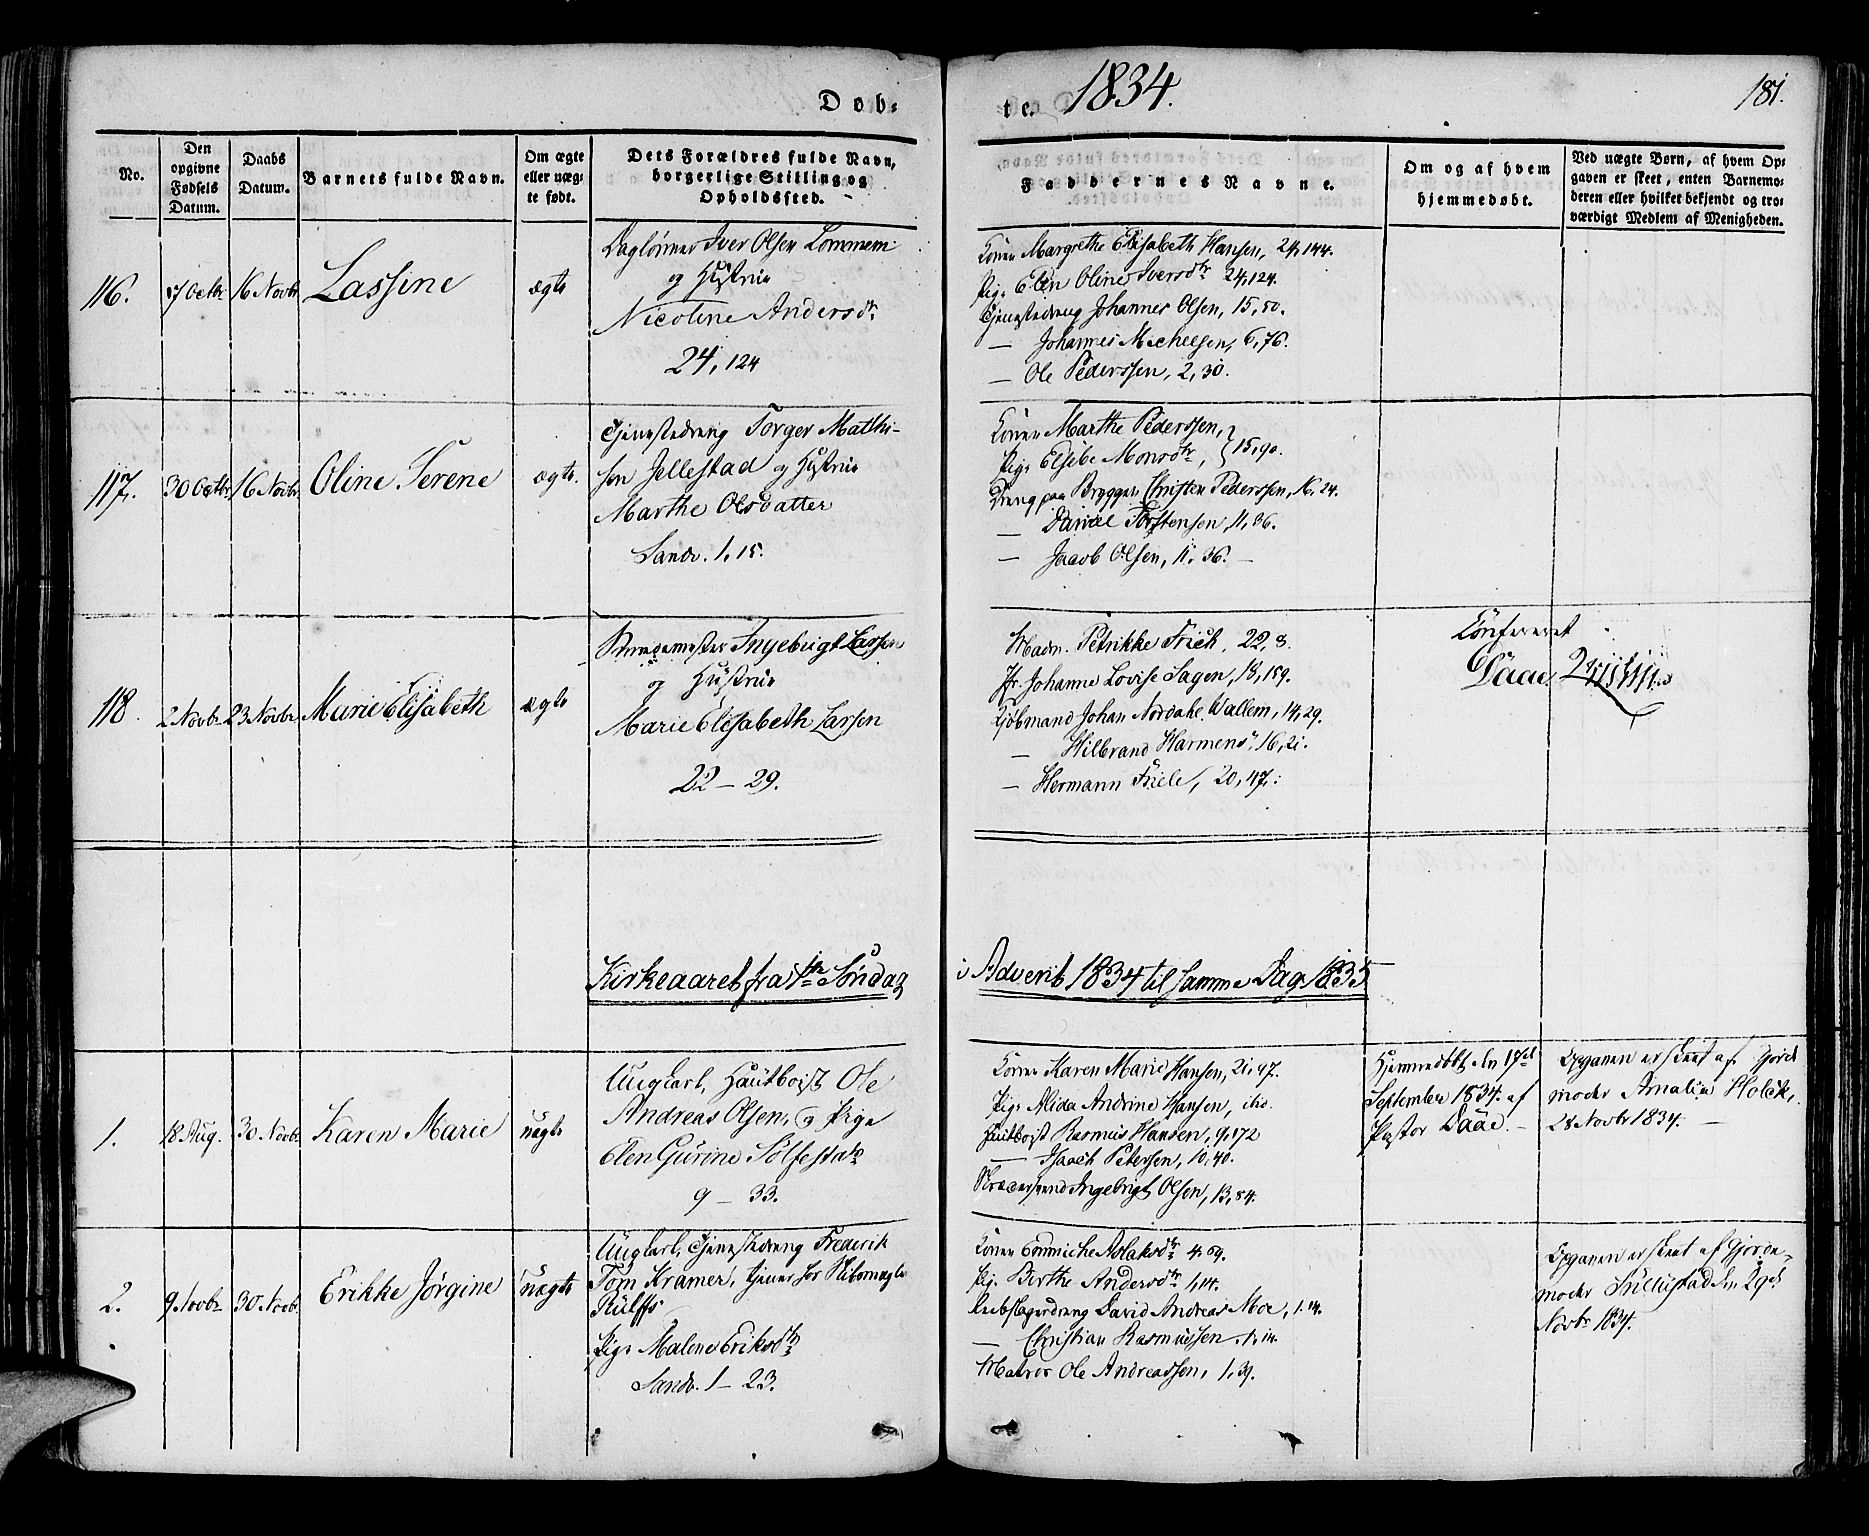 Døb-
te. 1834.
181.
No.
Den opgivne Fødsels Datum.
Daabs Datum.
Barnets fulde Navn.
Om ægte eller uægte født.
Dets Forældres fulde Navn, borgerlige Stilling og Opholdssted.
Faddernes Navne.
Om og af hvem hjemmedøbt.
Ved uægte Børn, af hvem Opgaven er skeet, enten Barnemoderen eller hvilket bekjendt og troværdigt Medlem af Menigheden.
116.
7 Octbr
16 Novbr
Lassine
ægte
Dagleiønner Iver Olsen Lommem
og Hustrue
Nicoline Andersdtr
24, 124
Konen Margrethe Elisabeth Hansen, 24, 144.
Pige Elen Oline Iversdtr 24, 124.
Tjenestedreng Johannes Olsen, 15, 50.
— Johannes Michelsen, 6, 76.
— Ole Pederssen, 2, 30.
117.
30 Octbr
16 Novbr
Oline Serene
ægte.
Tjenestedreng Torger Mathi-
sen Jellestad og Hustrue
Marthe Olsdatter
Sandv. 1, 15.
Konen Marthe Pederssen,
Pige Elsebe Monsdtr, } 15, 90.
Dreng paa Bryggen Christen Pederssen, 16, 24.
— Daniel Torstensen, 11, 36.
— Jacob Olsen, 11, 36. —
118
2 Novbr
23 Novbr
Marie Elisabeth
ægte
Ingebrigt Larsen
og Hustrue
Marie Elisabeth Larsen
22 — 29.
Madm. Petrikke Frich, 22, 8.
Jfr. Johanne Lovise Sagen, 18, 159.
Kjøbmand Johan Nordahl Wallem, 14, 29.
— Hilbrand Harmens, 16, 21.
— Hermann Friele, 20, 47.
Confereret
Daae
Kirkeaaret fra 1te Søndag
i Advent 1834 til samme Dag 1835
1.
18 Aug.
30 Novbr
Karen Marie
uægte
Ungkarl, Hautboist Ole
Andreas Olsen, og Pige
Elen Gurine Solfestdtr
9 — 33.
Konen Karen Marie Hansen, 21, 47.
Pige Alida Andrine Hansen, ibd.
Hautboist Rasmus Hansen, 9, 172
— Isaach Petersen, 10, 40.
Skrædersvend Ingebrigt Olsen, 13, 84.
Hjemmedøbt den 17de
September 1834 af
Pastor Daae. —
Opgaven er skeet af Jorde
moder Amalia Holck,
28 Novbr 1834. —
2.
9 Novbr
30 Novbr
Erikke Jørgine
uægte
Ungkarl, Tjenestedreng Frederik
Tom Kramer, tjener hos Skibsmægler
Rulffs
Pige Malene Eriksdtr
Sandv. 1 — 23.
Konen Emmiche Aslaksdtr 4, 69.
Pige Berthe Andersdtr 1, 14.
Reebslagerdreng David Andreas Moe, 1, 14.
— Christian Rasmussen, 1, 14.
Matros Ole Andreassen, 1, 39.
Opgaven er skeet af Jorde-
moder Tullustad den 29de
Novbr 1834.